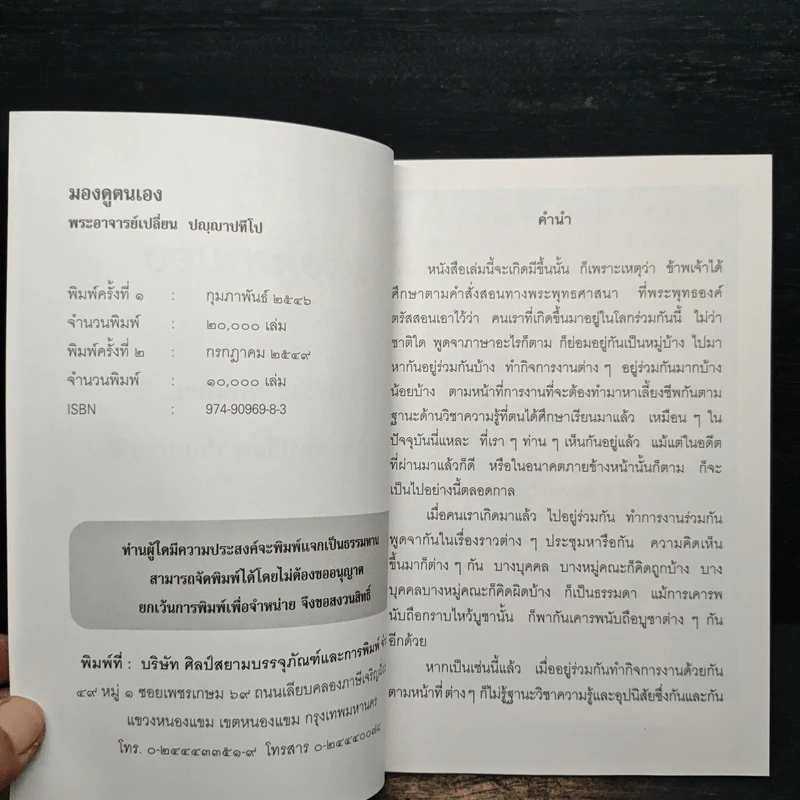 มองดูตนเอง
พระอาจารย์เปลี่ยน ปญฺญาปทีโป
พิมพ์ครั้งที่ ๑ : กุมภาพันธ์ ๒๕๔๖
จำนวนพิมพ์ : ๒๐,๐๐๐ เล่ม
พิมพ์ครั้งที่ ๒ : กรกฎาคม ๒๕๔๙
จำนวนพิมพ์ : ๑๐,๐๐๐ เล่ม
ISBN : 974-90969-8-3
ท่านผู้ใดมีความประสงค์จะพิมพ์แจกเป็นธรรมทาน
สามารถจัดพิมพ์ได้โดยไม่ต้องขออนุญาต
ยกเว้นการพิมพ์เพื่อจำหน่าย จึงขอสงวนสิทธิ์
พิมพ์ที่ : บริษัท ศิลป์สยามบรรจุภัณฑ์และการพิมพ์
๔๙ หมู่ ๑ ซอยเพชรเกษม ๖๙ ถนนเลียบคลองภาษีเจริญ
แขวงหนองแขม เขตหนองแขม กรุงเทพมหานคร
โทร. ๐-๒๔๔๔๓๓๕๑-๙ โทรสาร
คำนำ
หนังสือเล่มนี้จะเกิดมีขึ้นนั้น ก็เพราะเหตุว่า ข้าพเจ้าได้
ศึกษาตามคำสั่งสอนทางพระพุทธศาสนา ที่พระพุทธองค์
ตรัสสอนเอาไว้ว่า คนเราที่เกิดขึ้นมาอยู่ในโลกร่วมกันนี้ ไม่ว่า
ชาติใด พูดจาภาษาอะไรก็ตาม ก็ย่อมอยู่กันเป็นหมู่บ้าง ไปมา
หากันอยู่ร่วมกันบ้าง ทำกิจการงานต่าง ๆ อยู่ร่วมกันมากบ้าง
น้อยบ้าง ตามหน้าที่การงานที่จะต้องทำมาหาเลี้ยงชีพกันตาม
ฐานะด้านวิชาความรู้ที่ตนได้ศึกษาเรียนมาแล้ว เหมือน ๆ ใน
ปัจจุบันนี้แหละ ที่เรา ๆ ท่าน ๆ เห็นกันอยู่แล้ว แม้แต่ในอดีต
ที่ผ่านมาแล้วก็ดี หรือในอนาคตภายข้างหน้านั้นก็ตาม ก็จะ
เป็นไปอย่างนี้ตลอดกาล
เมื่อคนเราเกิดมาแล้ว ไปอยู่ร่วมกัน ทำการงานร่วมกัน
พูดจากันในเรื่องราวต่าง ๆ ประชุมหารือกัน ความคิดเห็น
ขึ้นมาก็ต่าง ๆ กัน บางบุคคล บางหมู่คณะก็คิดถูกบ้าง บาง
บุคคลบางหมู่คณะก็คิดผิดบ้าง ก็เป็นธรรมดา แม้การเคารพ
นับถือกราบไหว้บูชานั้น ก็พากันเคารพนับถือบูชาต่าง ๆ กัน
อีกด้วย
หากเป็นเช่นนี้แล้ว เมื่ออยู่ร่วมกันทำกิจการงานด้วยกัน
ตามหน้าที่ ต่างๆ ก็ไม่รู้ฐานะวิชาความรู้และอุปนิสัยซึ่งกันและกัน